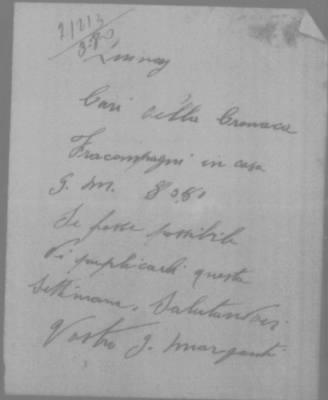 Cari della Cronaca
Fracompagni in casa
G. M. 8.80
Se fosse possibile
di pubplicarli questa
Settimana, Salutandovi
Vostro J. Margant